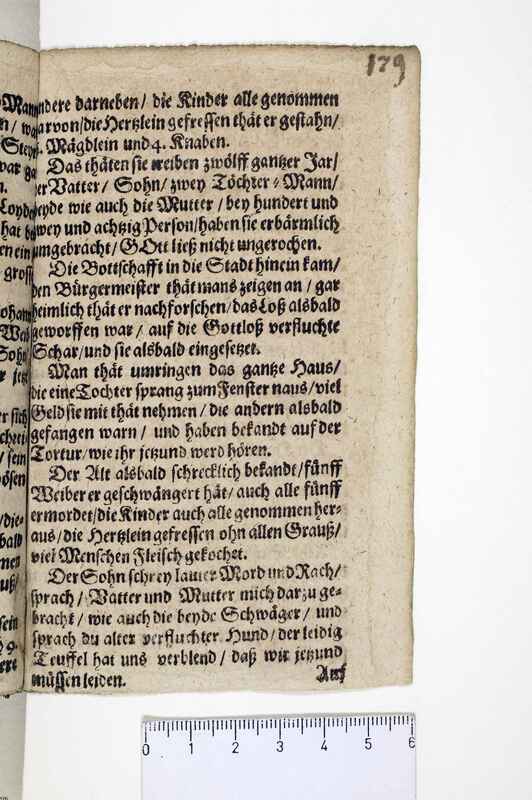 179
andere darneben / die Kinder alle genommen
darvon / die Hertzlein gefressen thät er gestahn /
Mägdlein und 4. Knaben.
Das thäten sie treiben zwölff gantzer Jar /
der Vatter / Sohn / zwey Töchter-Mann /
beyde wie auch die Mutter / bey hundert und
zwey und achtzig Person / haben sie erbärmlich
umgebracht / GOtt ließ nicht ungerochen.
Die Bottschafft in die Stadt hinein kam /
den Bürgermeister thät mans zeigen an / gar
heimlich thät er nachforschen / das Loß alsbald
geworffen war / auf die Gottloß verfluchte
Schar / und sie alsbald eingesetzet.
Man thät umringen das gantze Haus /
die eine Tochter sprang zum Fenster naus / viel
Geld sie mit thät nehmen / die andern alsbald
gefangen warn / und haben bekandt auf der
Tortur / wie ihr jetzund werd hören.
Der Alt alsbald schrecklich bekandt / fünff
Weiber er geschwängert hät / auch alle fünff
ermordet / die Kinder auch alle genommen her-
aus / die Hertzlein gefressen ohn allen Grauß /
viel Menschen Fleisch gekochet.
Der Sohn schrey lauter Mord und Rach /
sprach / Vatter und Mutter mich darzu ge-
bracht / wie auch die beyde Schwäger / und
sprach du alter verfluchter Hund / der leidig
Teuffel hat uns verblend / daß wir jetzund
müssen leiden.
Auf
0 1 2 3 4 5 6